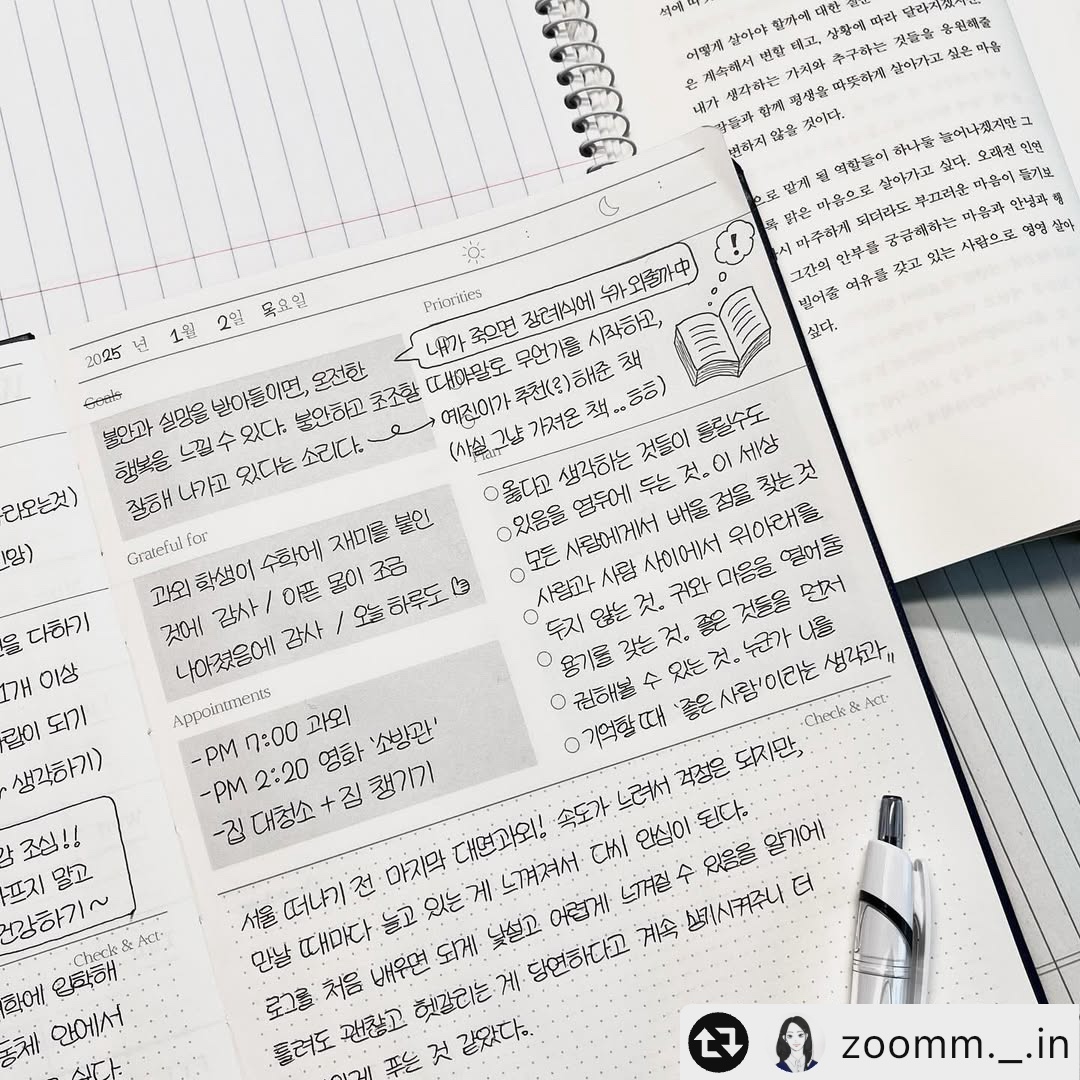 어떻게 살아야 할까에 대한
은 계속해서 변할 테고, 상황에 따라 달라지겠지만,
내가 생각하는 가치와 추구하는 것들을 응원해줄
람들과 함께 평생을 따뜻하게 살아가고 싶은 마음
변하지 않을 것이다.
으로 맡게 될 역할들이 하나둘 늘어나겠지만 그
록 맑은 마음으로 살아가고 싶다. 오래전 인연
시 마주하게 되더라도 부끄러운 마음이 들기보
그간의 안부를 궁금해하는 마음과 안녕과 행
빌어줄 여유를 갖고 있는 사람으로 영영 살아
싶다.
2025 년 1월 2일 목요일
Goals
불안과 실망을 받아들이면, 온전한
행복을 느낄 수 있다. 불안하고 초조함
잘해 나가고 있다는 소리다.
Priorities
내가 죽으면 장례식에 누가 와줄까中
!
때야말로 무언가를 시작하고,
예진이가 추천(?)해준 책
(사실 그냥 가져온 책 .. ㅎㅎ)
Grateful for
과외 학생이 수학에 재미를 붙인
것에 감사 / 아픈 몸이 조금
나아졌음에 감사 / 오늘 하루도
Appointments
-PM 7:00 과외
-PM 2:20 영화 '소방관'
-집 대청소 + 짐 챙기기
Plan
옳다고 생각하는 것들이 틀릴수도
있음을 염두에 두는 것. 이 세상
모든 사람에게서 배울 점을 찾는 것
사람과 사람 사이에서 위아래를
두지 않는 것. 귀와 마음을 열어둘
용기를 갖는 것. 좋은 것들을 먼저
권해볼 수 있는 것. 누군가 나를
기억할 때 '좋은 사람'이라는 생각과,,
Check & Act
서울 떠나기 전 마지막 대면과외! 속도가 느려서 걱정은 되지만,
만날 때마다 늘고 있는 게 느껴져서 다시 안심이 된다.
로그를 처음 배우면 되게 낯설고 어렵게 느껴질 수 있음을 알기에
틀려도 괜찮고 헷갈리는 게 당연하다고 계속 상기시켜주니 더
푸는 것 같았다.
라오는것)
을 다하기
1개 이상
사람이 되기
생각하기)
감 조심!!
아프지 말고
건강하기~
Check & Act
대학에 입학해
동체 안에서
싶다.
zoomm._.in